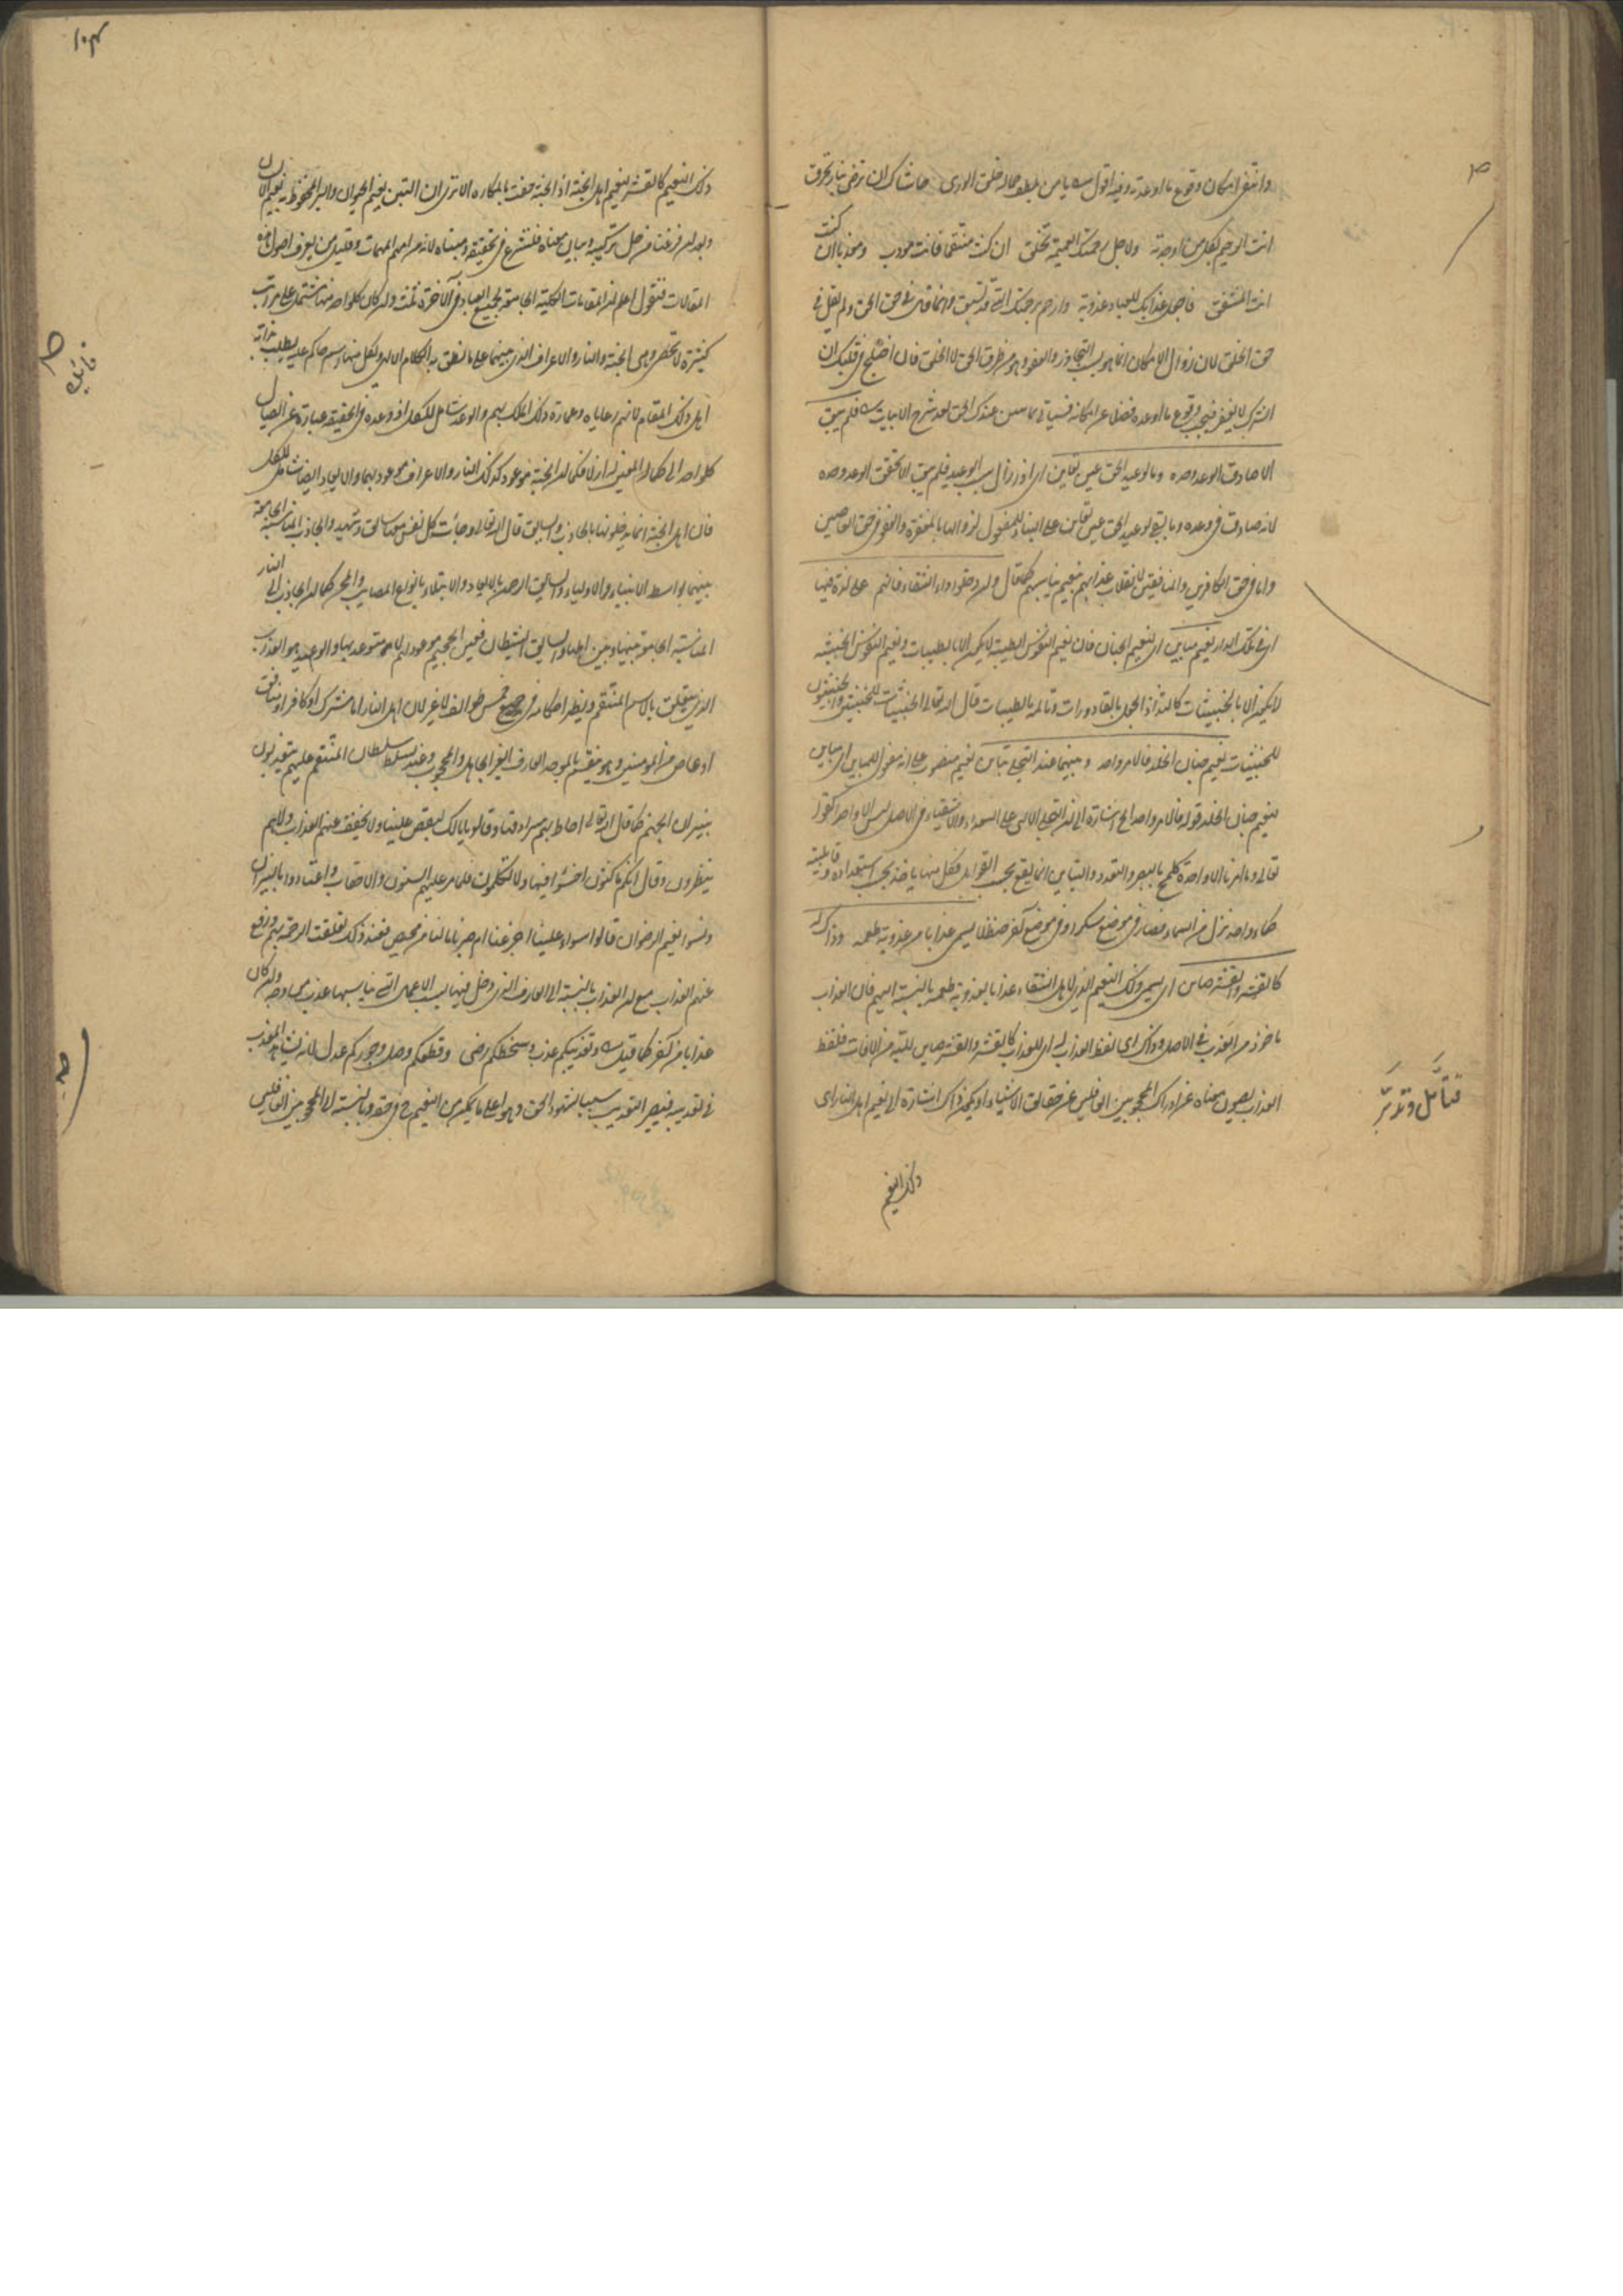 وانتفى امكان وقوع ما اوعد به وفيه اقول يا من بلطف جماله خلق الورى حاشاك ان ترضى بنار تحرق
انت الرحيم بكل من اوجدته ولاجل رحمتك العميمة تخلق ان كنت منتقما فانت مودب ومعذبا ان كنت
انت المشفق فاجعل عذابك للعباد عذوبة وارحم برحمتك التي قد تسبق وانما قال في حق الحق ولم يقل في
حق الخلق لان زوال الامكان انما هو بسبب التجاوز والعفو وهو من طرف الحق لا الخلق فان اختلج في قلبك ان
الشرك لا يغفر فيجب وقوع ما اوعده فضلا عن امكانه فسياتي بعد شرح الابيات فلم يبق
الا صادق الوعد وحده وما لوعيد الحق عين تعاين اي اذ زال سبب الوعيد فلم يبق الا تحقق الوعد وحده
لانه صادق في وعده وما بقي لوعيد الحق عين تعاين على البناء للمفعول لزوالها بالمغفرة والعفو في حق العاصين
واما في حق الكافرين والمنافقين لانقلاب عذابهم بنعيم يناسبهم كما قال وان دخلوا دار الشقاء فانهم على لذة فيها
اي في تلك الدار نعيم مباين اي لنعيم الجنان فان نعيم النفوس الطيبة لا يكون الا بالطيبات ونعيم النفوس الخبيثة
لا يكون الا بالخبيثات كالتذاذ الجعل بالقاذورات وتالمه بالطيبات قال الله تعالى الخبيثات للخبيثين والخبيثون
للخبيثات نعيم جنان الخلد فالامر واحد وبينهما عند التجلي تباين نعيم منصوب على انه مفعول للمباين اي مباين
لنعيم جنان الخلد قوله فالامر واحد الخ اشارة الى ان التجلي الالهي على السعداء والاشقياء في الاصل ليس الا واحدا كقوله
تعالى وما امرنا الا واحدة كلمح بالبصر والتعدد والتباين انما يقع بحسب القوابل فكل منها ياخذ بحسب استعداده وقابليته
كماء واحد نزل من السماء فصار في موضع سكرا وفي موضع آخر حنظلا يسمى عذابا من عذوبة طعمه وذاك له
كالقشر والقشر صاين اي يسمى ذلك النعيم الذي لاهل الشقاء عذابا لعذوبة طعمه بالنسبة اليهم فان العذاب
ماخوذ من العذب في الاصل وذاك اي لفظ العذاب له اي للعذاب كالقشر والقشر صاين للبه من الافات فلفظ
العذاب يصون معناه عن ادراك المحجوبين الغافلين عن حقائق الاشياء او يكون ذاك اشارة الى نعيم اهل النار اي
ذلك النعيم
فتأمل وتدبر
١٠٤
ذلك النعيم كالقشر لنعيم اهل الجنة اذ الجنة حفت بالمكاره الا ترى ان التبن نعيم الحيوان والبر المحفوظ به نعيم الانسان
وبعد ان فرغنا من حل تركيبه وبيان معناه فلنشرع في تحقيقه ومبناه لانه من اهم المهمات وقليل من يعرف اصول هذه
المقالات فنقول اعلم ان المقامات الكلية الجامعة لجميع العباد في الآخرة ثلث وان كان كل واحد منها مشتمل على مراتب
كثيرة لا تحصى وهي الجنة والنار والاعراف الذي بينهما على ما نطق به الكلام الالهي ولكل منها اسم حاكم عليه يطلب بذاته
اهل ذلك المقام لانهم رعاياه وعمارة ذلك الملك بهم والوعد شامل للكل اذ وعده في الحقيقة عبارة عن ايصال
كل واحد الى كماله المعين له ازلا فكما ان الجنة موعود كذلك النار والاعراف موعود بهما والايعاد ايضا شامل للكل
فان اهل الجنة انما يدخلونها بالجاذب والسايق قال الله تعالى وجائت كل نفس معها سايق وشهيد والجاذب المناسبة الجامعة
بينهما بواسطة الانبياء والاولياء والسايق الرحمن بالايعاد والابتلاء بانواع المصايب والمحن كما ان الجاذب الى النار
المناسبة الجامعة بينها وبين اهلها والسايق الشيطان فعين الجحيم موعود لهم لا متوعد بها والوعيد هو العذاب
الذي يتعلق بالاسم المنتقم ويظهر احكامه في خمس طوائف لا غير لان اهل النار اما مشرك او كافر او منافق
او عاص من المومنين وهو ينقسم بالموحد العارف الغير العامل والمحجوب وعند تسلط سلطان المنتقم عليهم يتعذبون
بنيران الجحيم كما قال الله تعالى احاط بهم سرادقها وقالوا يا مالك ليقض علينا ولا يخفف عنهم العذاب ولا هم
ينظرون وقال انكم ماكثون اخسؤا فيها ولا تكلمون فلما مر عليهم السنون والاحقاب واعتادوا بالنيران
ونسوا نعيم الرضوان قالوا سواء علينا اجزعنا ام صبرنا ما لنا من محيص فعند ذلك تعلقت الرحمة بهم ورفع
عنهم العذاب مع ان العذاب بالنسبة الى العارف الذي دخل فيها بسبب الاعمال التي تناسبها عذب من وجه وان كان
عذابا من آخر كما قيل وتعذيبكم عذب وسخطكم رضى وقطعكم وصل وجوركم عدل لانه يشاهد المعذب
في تعذيبه فيصير التعذيب سببا لشهود الحق وهو اعلى ما يكون من النعيم ح في حقه وبالنسبة الى المحجوبين الغافلين
فائدة